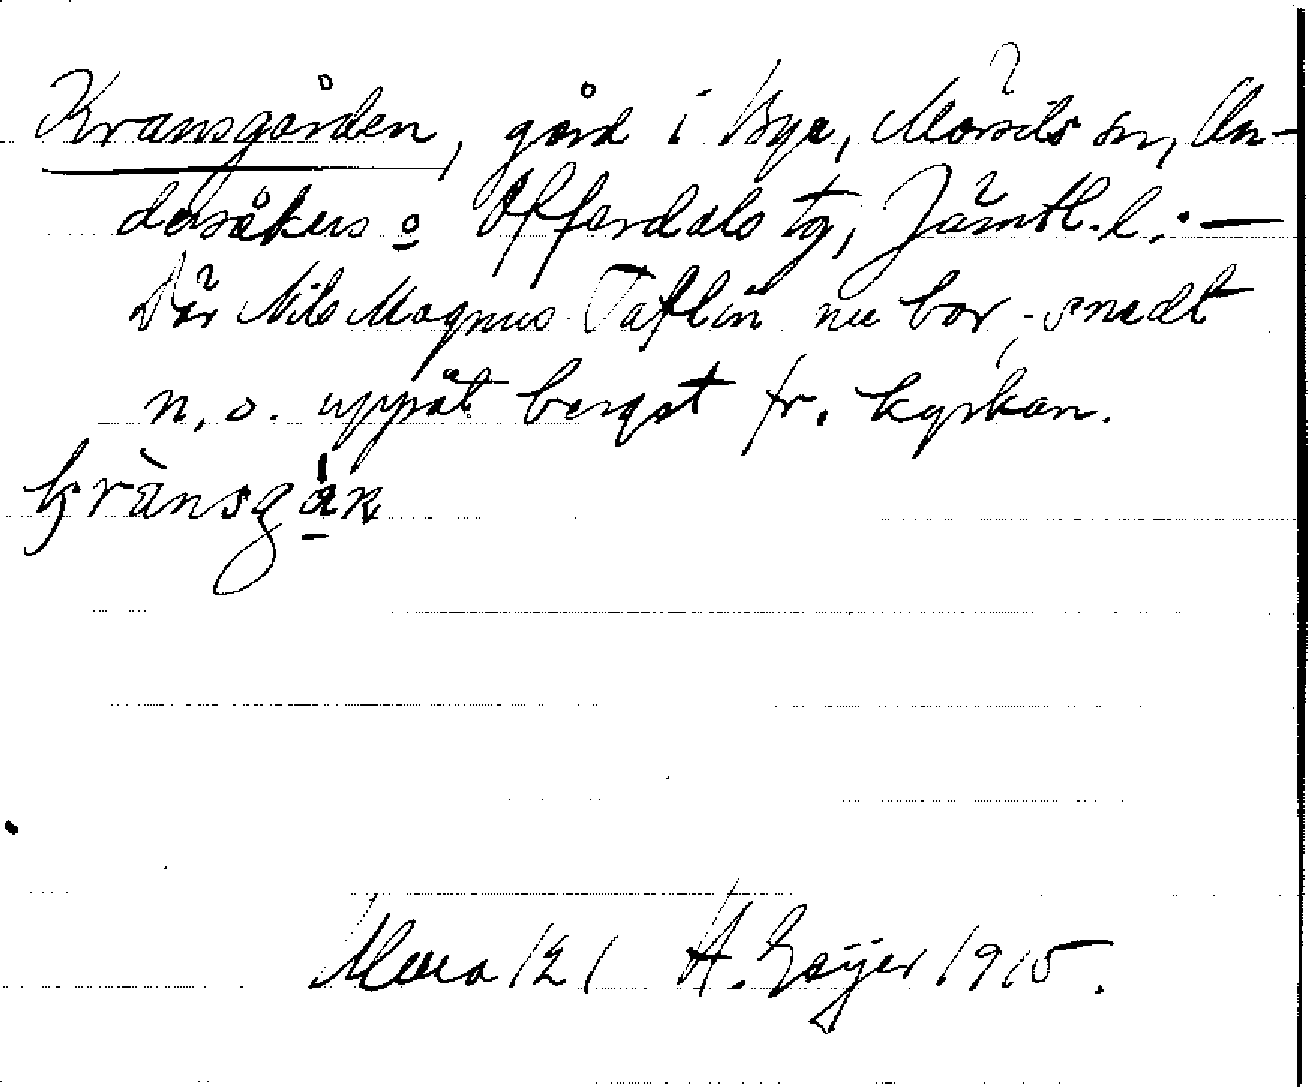 Kransgården, gård i Bye, Mörsils sn, Un-
dersåkers o Offerdals tg, Jämtl. l.: —
Där Nils Magnus Taflin nu bor, snedt
n.o. uppåt berget fr. kyrkan.
krànsgák
121 H. Geijer 1915.